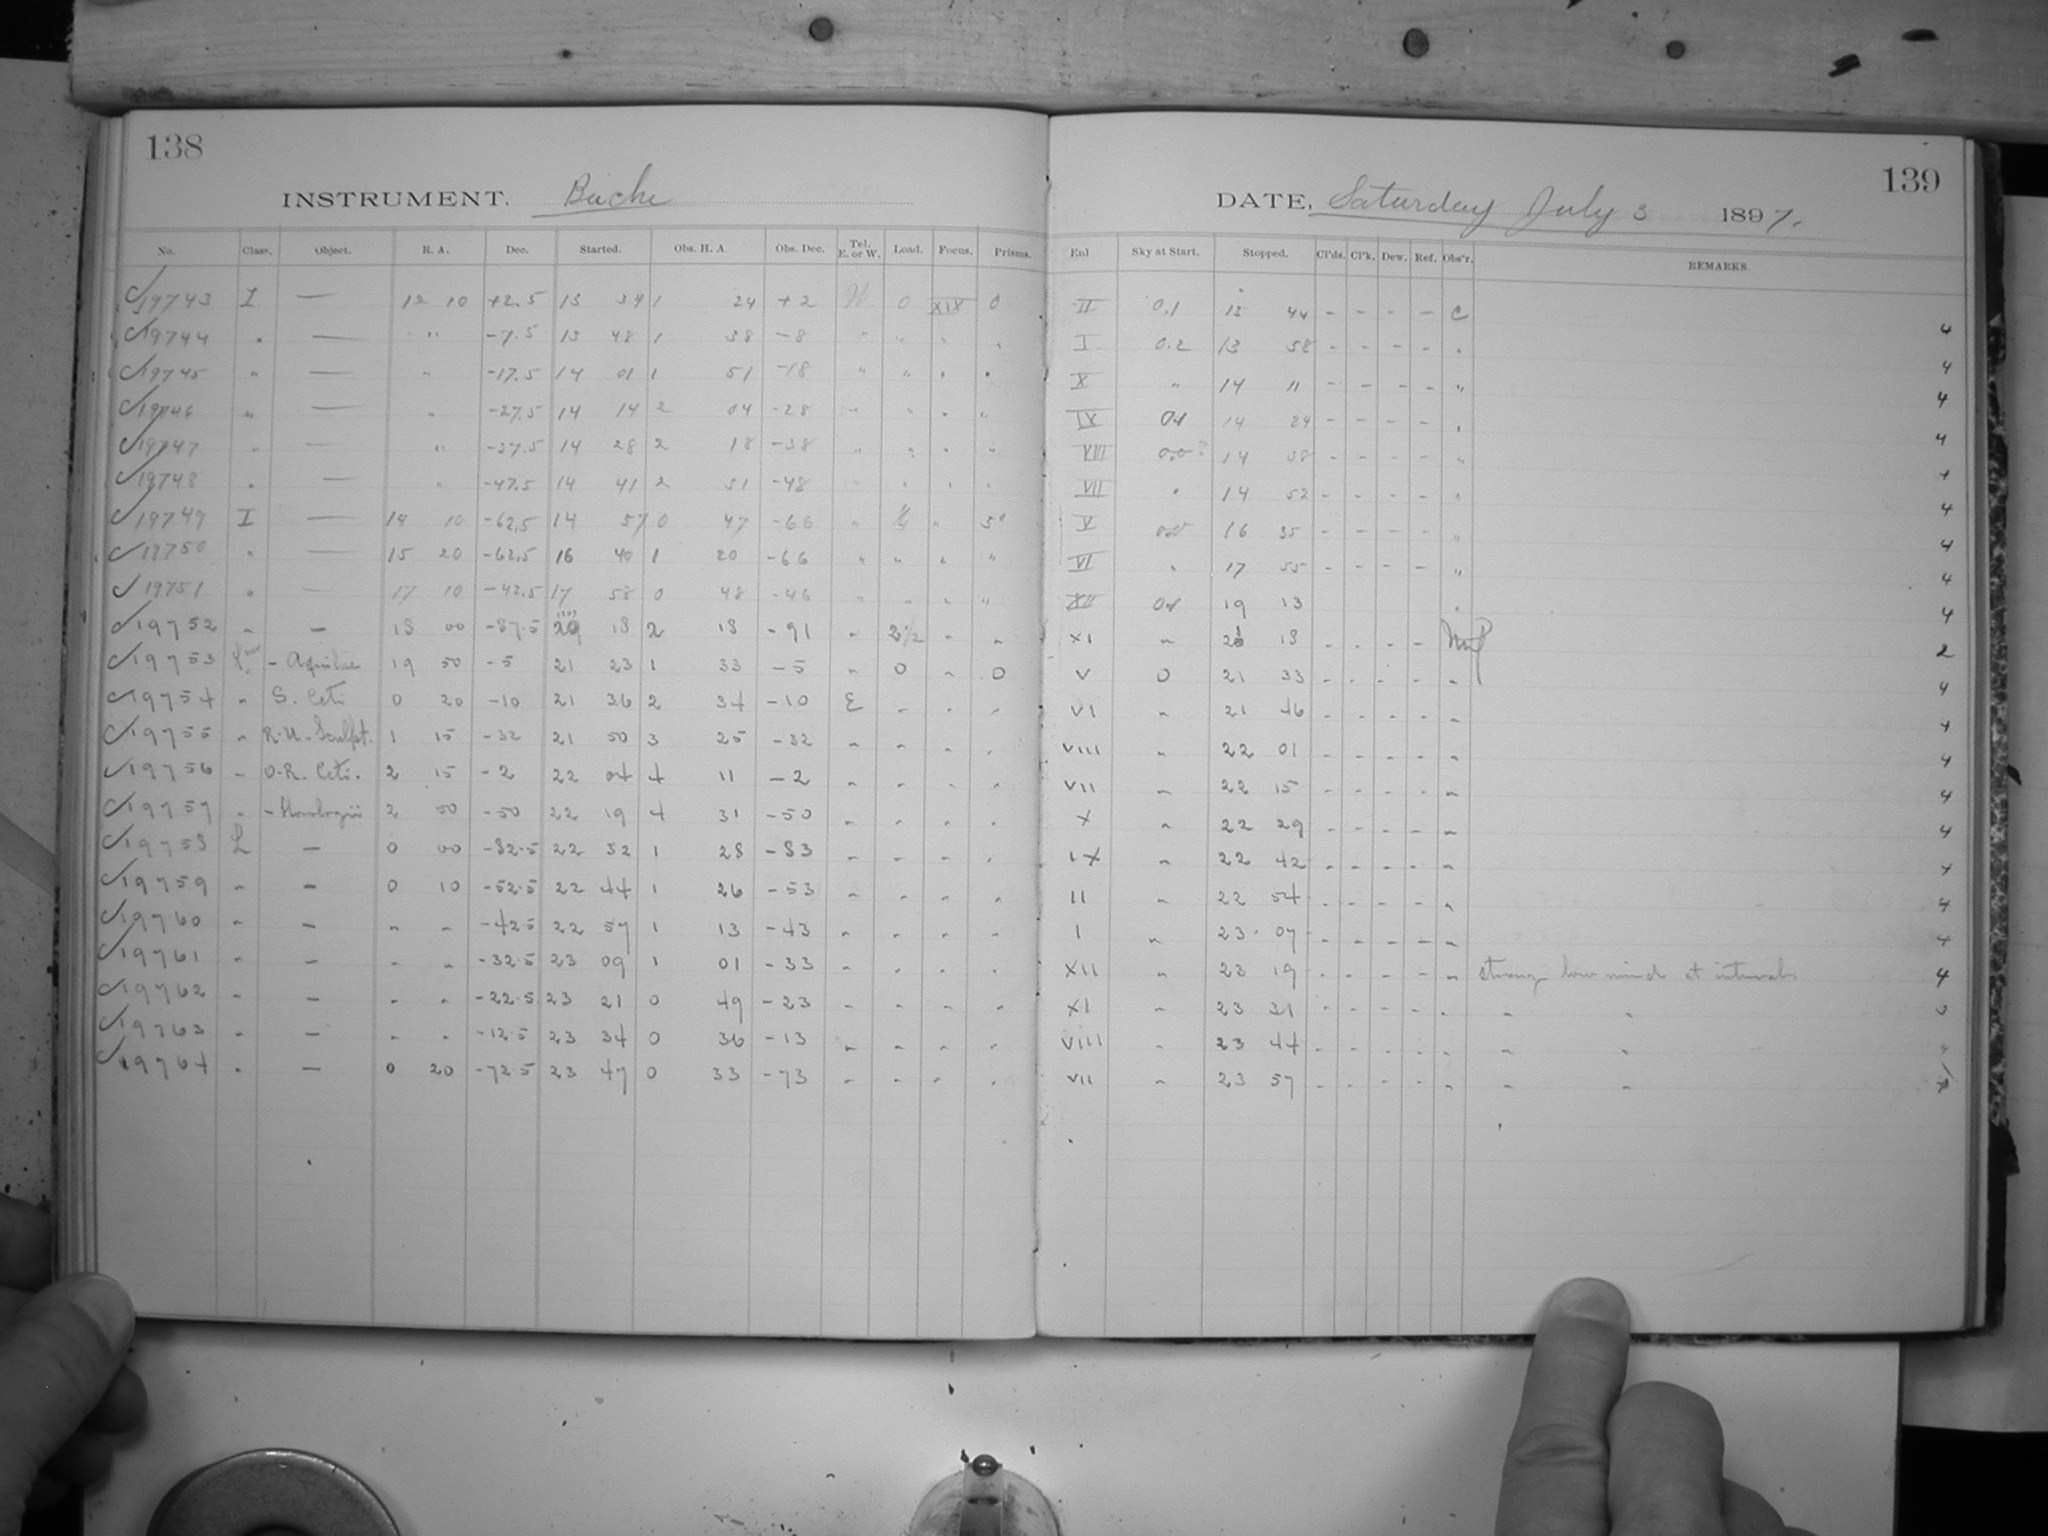 138
INSTRUMENT. Bache
No. Class. Object. R. A. Dec. Started. Obs. H. A. Obs. Dec. Tel. E. or W. Load. Focus. Prisms.
19743 I — 12 10 +2.5 13 34 1 24 +2 W 0 XIX 0
19744 " — " -7.5 13 48 1 38 -8 " " " "
19745 " — " -17.5 14 01 1 51 -18 " " " "
19746 " — " -27.5 14 14 2 04 -28 " " " "
19747 " — " -37.5 14 28 2 18 -38 " " " "
19748 " — " -47.5 14 41 2 31 -48 " " " "
19749 I — 14 10 -62.5 14 57 0 47 -66 " " 5"
19750 " — 15 20 -62.5 16 40 1 20 -66 " " " "
19751 " — 17 10 -42.5 17 58 0 48 -46 " " " "
19752 " — 18 00 -87.5 18 2 18 -91 " 2½ " "
19753 - Aquilae 19 50 -5 21 23 1 33 -5 " 0 " 0
19754 " S. Ceti 0 20 -10 21 36 2 34 -10 E " " "
19755 " R-U-Sculpt. 1 15 -32 21 50 3 25 -32 " " " "
19756 " O-R. Ceti. 2 15 -2 22 04 4 11 -2 " " " "
19757 " - Horologii 2 50 -50 22 19 4 31 -50 " " " "
19758 L — 0 00 -82.5 22 32 1 28 -83 " " " "
19759 " — 0 10 -52.5 22 44 1 26 -53 " " " "
19760 " — " " -42.5 22 57 1 13 -43 " " " "
19761 " — " " -32.5 23 09 1 01 -33 " " " "
19762 " — " " -22.5 23 21 0 49 -23 " " " "
19763 " — " " -12.5 23 34 0 36 -13 " " " "
19764 " — 0 20 -72.5 23 47 0 33 -73 " " " "
139
DATE, Saturday July 3 1897.
Enl Sky at Start. Stopped. Cl'ds. Cl'k. Dew. Ref. Obs'r. REMARKS.
II 0.1 13 44 - - - - C 4
I 0.2 13 58 - - - - " 4
X " 14 11 - - - - " 4
IX 14 24 - - - - " 4
VIII 0.0? 14 38 - - - - " 4
VII " 14 52 - - - - " 4
V 16 35 - - - - " 4
VI " 17 55 - - - - " 4
XII 19 13 " 4
XI " 18 - - - - 2
V 0 21 33 - - - - " 4
VI " 21 46 - - - - " 4
VIII " 22 01 - - - - " 4
VII " 22 15 - - - - " 4
X " 22 29 - - - - " 4
IX " 22 42 - - - - " 4
II " 22 54 - - - - " 4
I " 23 07 - - - - " 4
XII " 23 19 - - - - " strong low wind at intervals 4
XI " 23 31 - - - - " " "
VIII " 23 44 - - - - " " "
VII " 23 57 - - - - " " "